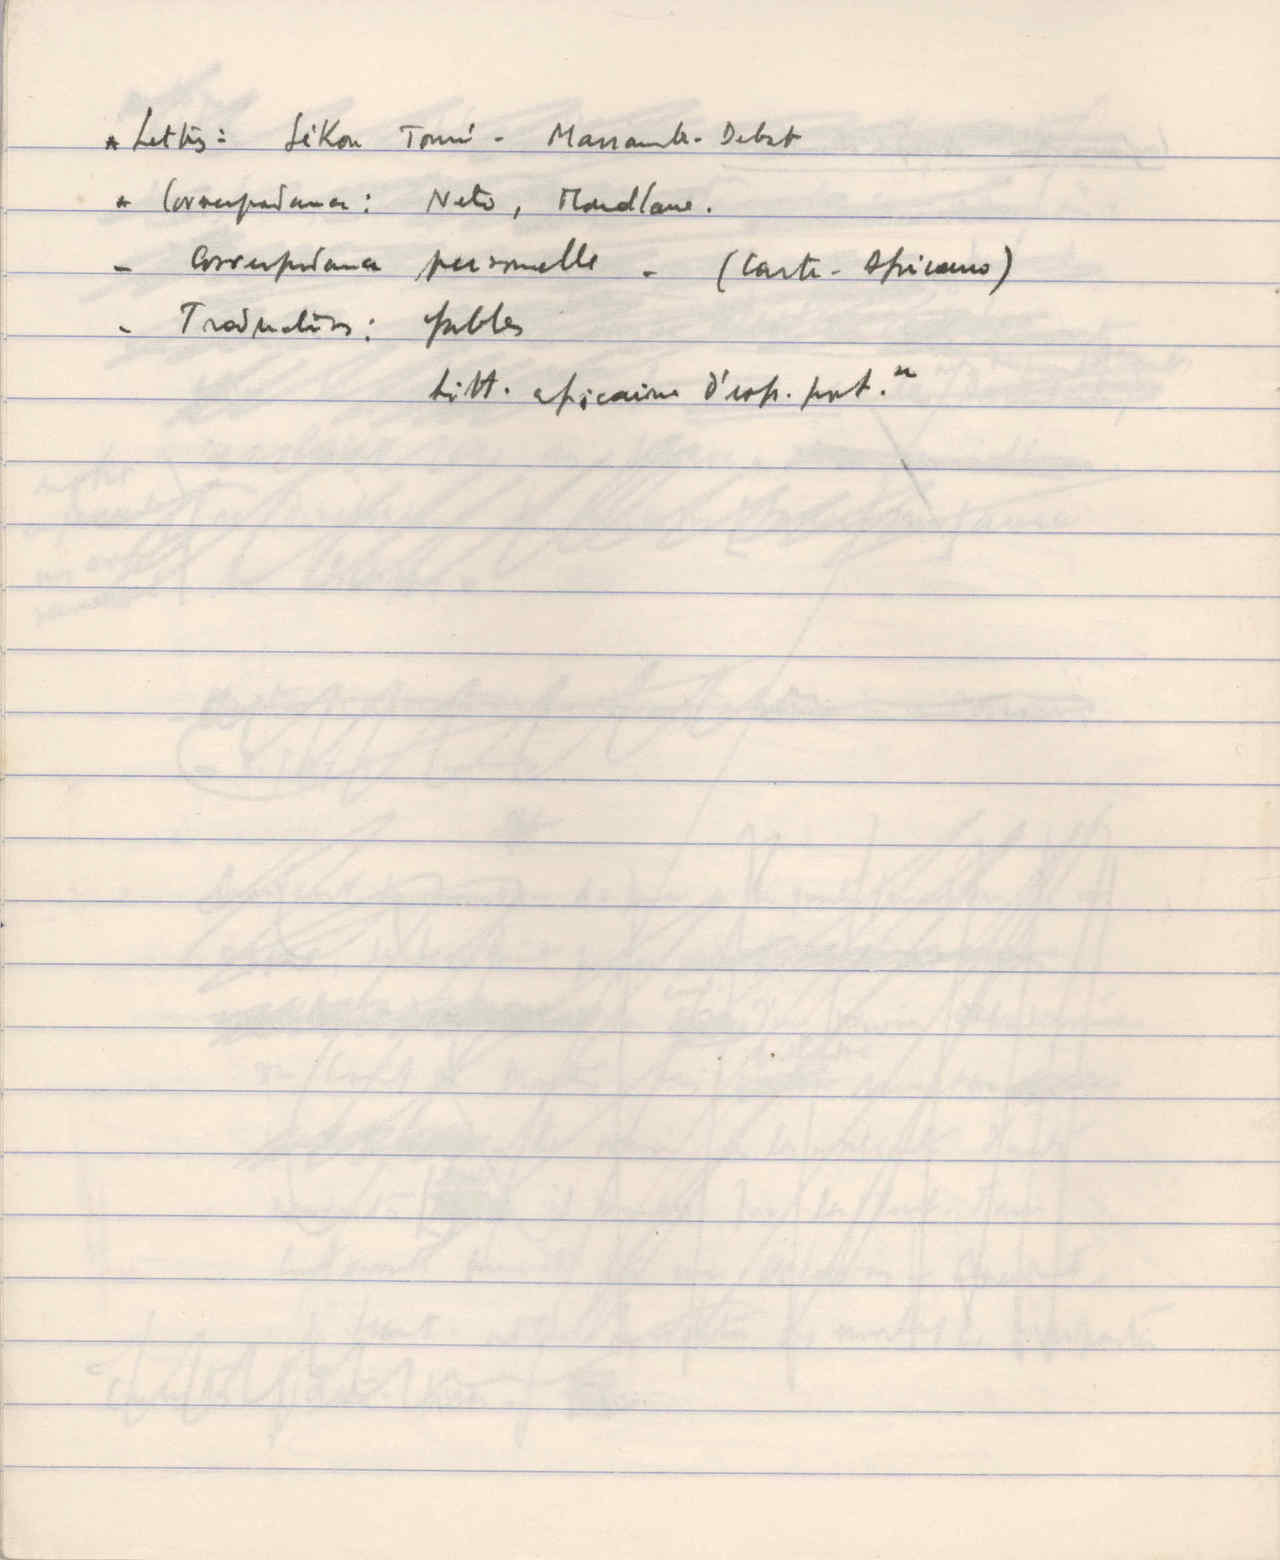 * Lettres: Sékou Touré - Massamba-Debat
* Correspondance: Neto, Mondlane.
- Correspondance personnelle - (Carte - Africains)
- Traductions: fables
Litt. africaine d'exp. port."